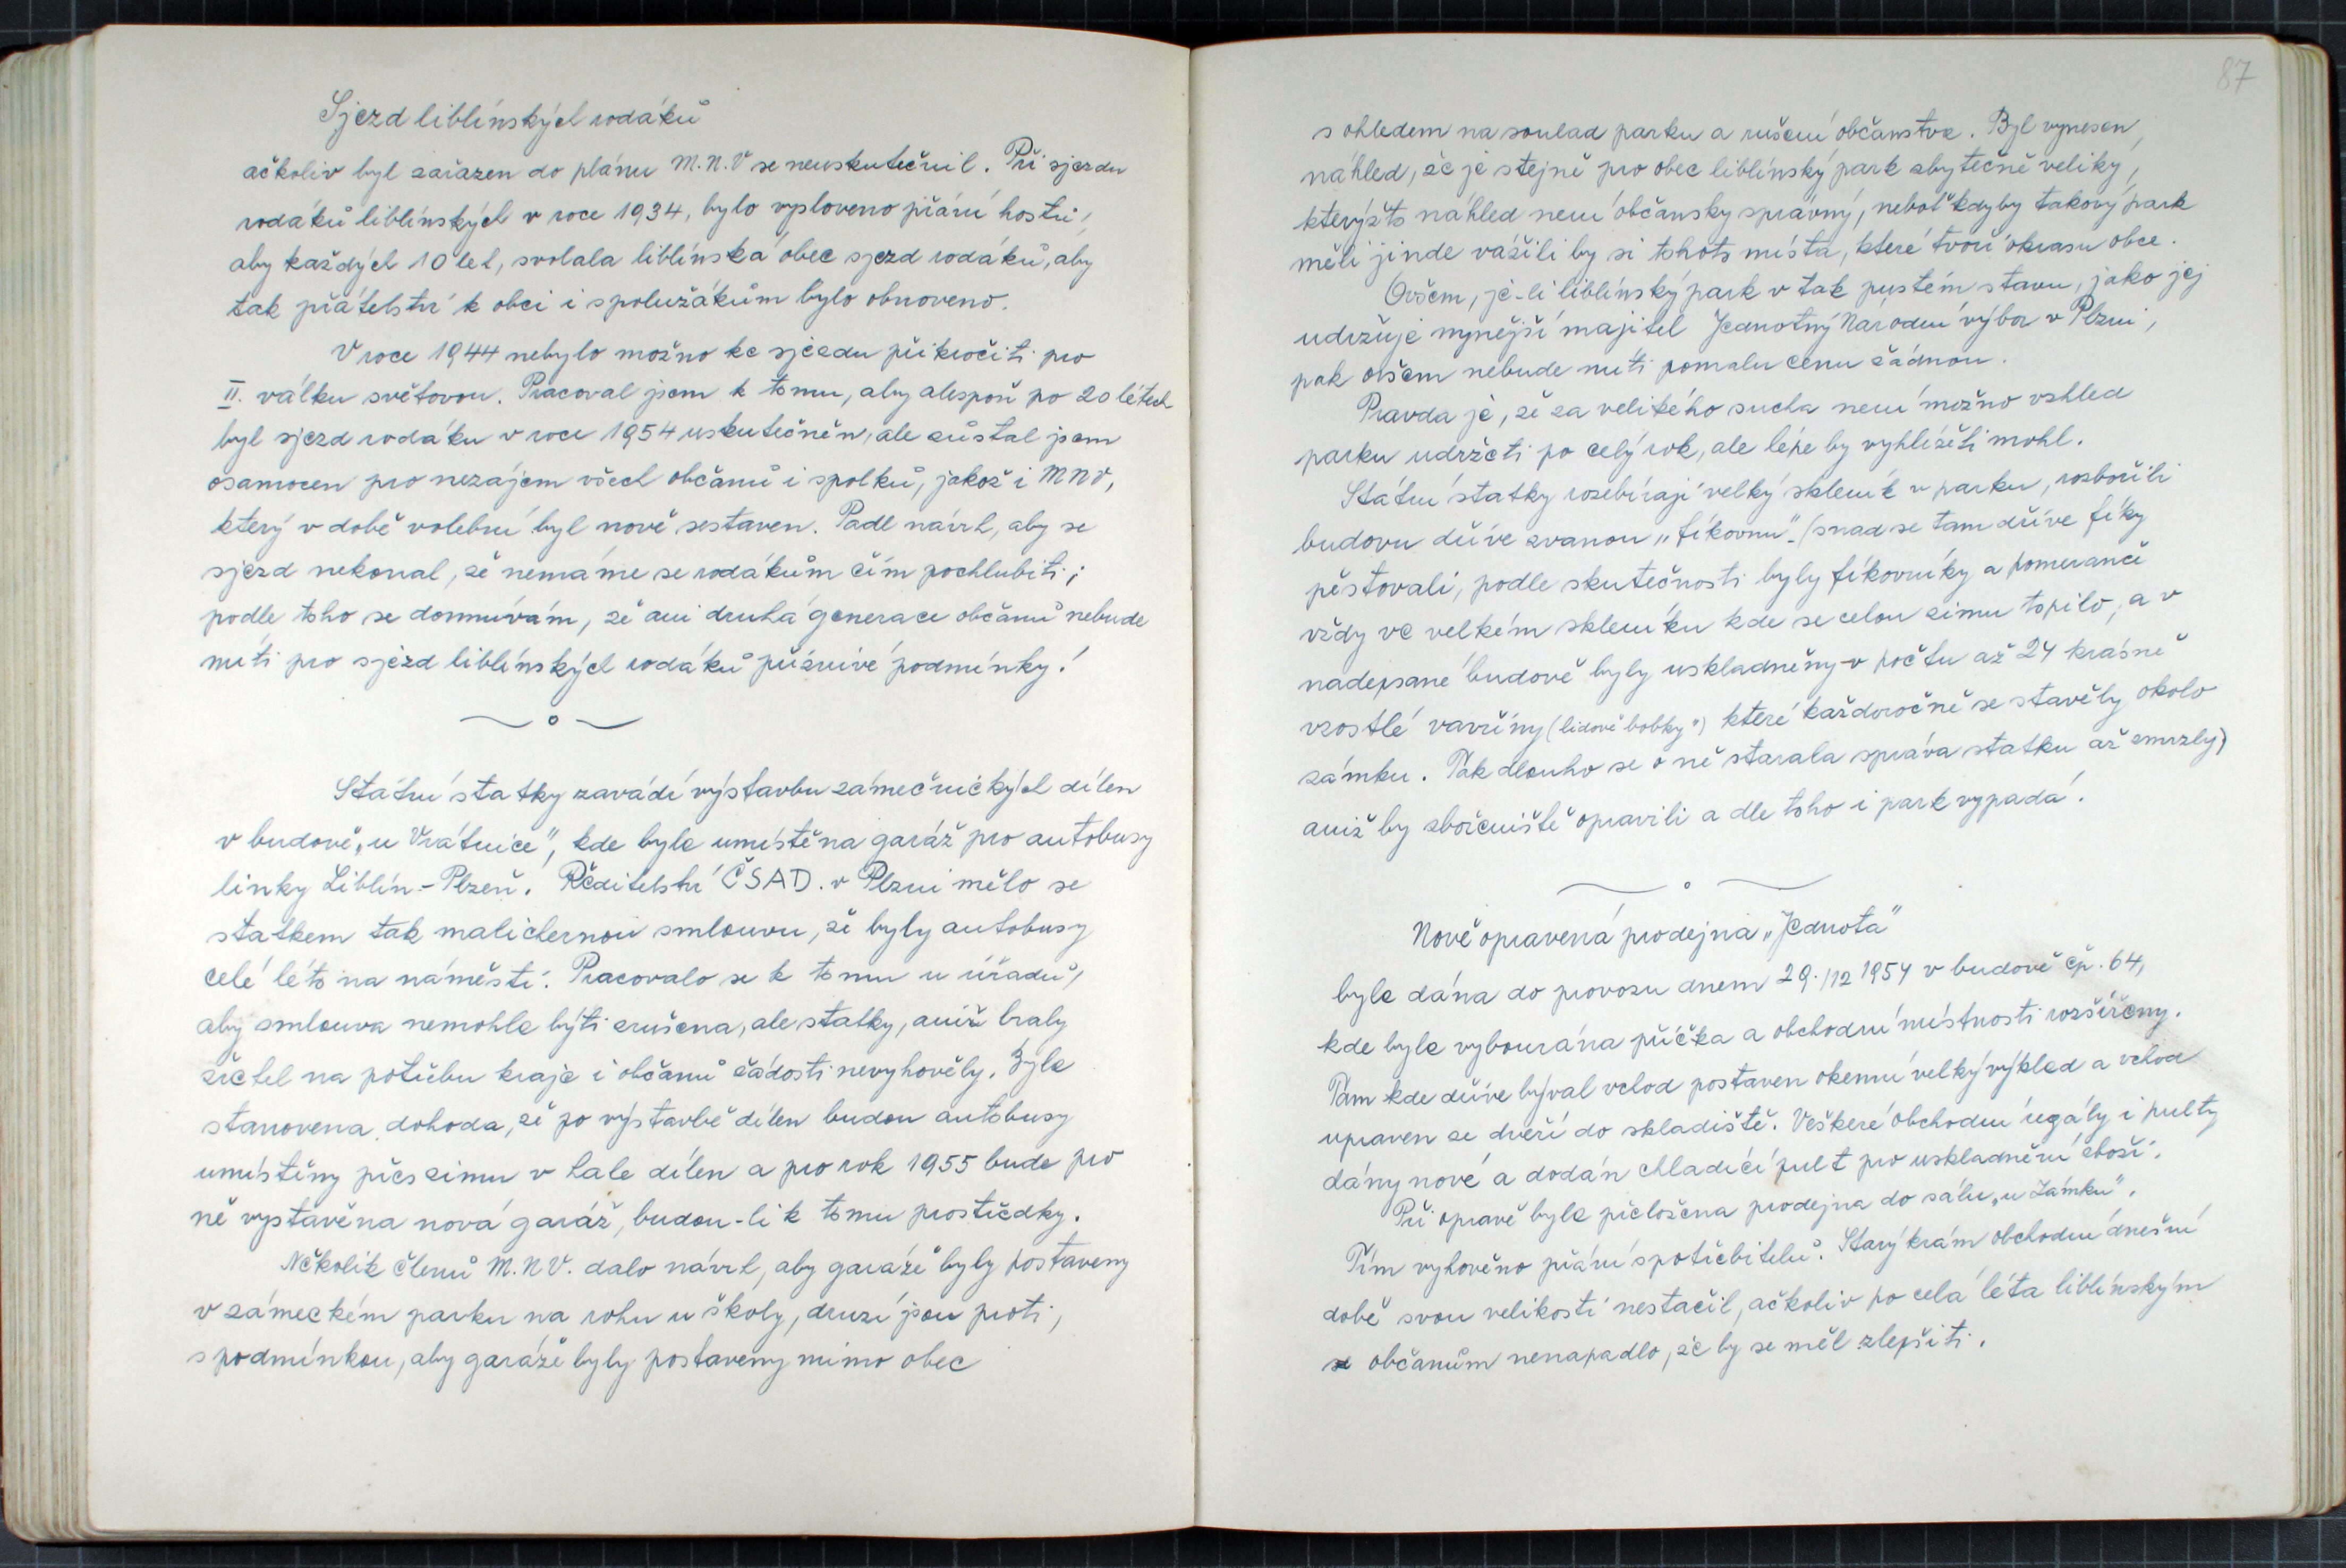 Sjezd liblínských rodáků
ačkoliv byl zařazen do plánu M.N.V se neuskutečnil. Při sjezdu
rodáků liblínských v roce 1934, bylo vysloveno přání hostů,
aby každých 10 let, svolala liblínská obec sjezd rodáků, aby
tak přátelství k obci i spolužákům bylo obnoveno.
V roce 1944 nebylo možno ke sjezdu přikročiti pro
II. válku světovou. Pracoval jsem k tomu, aby alespoň po 20 létech
byl sjezd rodáku v roce 1954 uskutečněn, ale zůstal jsem
osamocen pro nezájem všech občanů i spolků, jakož i MNV,
který v době volební byl nově sestaven. Padl návrh, aby se
sjezd nekonal, že nemáme se rodákům čím pochlubiti;
podle toho se domnívám, že ani druhá generace občanů nebude
míti pro sjezd liblínských rodáků příznivé podmínky!
Státní statky zavádí výstavbu zámečnických dílen
v budově „u Vrátnice", kde byla umístěna garáž pro autobusy
linky Liblín - Plzeň. Ředitelství ČSAD. v Plzni mělo se
statkem tak malichernou smlouvu, že byly autobusy
celé léto na náměstí. Pracovalo se k tomu u úřadů,
aby smlouva nemohla býti zrušena, ale statky, aniž braly
zřetel na potřebu kraje i občanů žádosti nevyhověly. Byla
stanovena dohoda, že po výstavbě dílen budou autobusy
umístěny přes zimu v hale dílen a pro rok 1955 bude pro
ně vystavěna nová garáž, budou-li k tomu prostředky.
Několik členů M.N.V. dalo návrh, aby garáže byly postaveny
v zámeckém parku na rohu u školy, druzí jsou proti,
s podmínkou, aby garáže byly postaveny mimo obec
87
s ohledem na soulad parku a rušení občanstva. Byl vynesen
náhled, že je stejně pro obec liblínský park zbytečně veliky,
kterýžto náhled není občansky správný, neboť kdyby takový park
měli jinde vážili by si tohoto místa, které tvoří okrasu obce.
Ovšem, je-li liblínský park v tak pustém stavu, jako jej
udržuje nynější majitel Jednotný Národní výbor v Plzni,
pak ovšem nebude míti pomalu cenu žádnou.
Pravda je, že za velikého sucha není možno vzhled
parku udržeti po celý rok, ale lépe by vyhlížeti mohl.
Státní statky rozebírají velký skleník v parku, rozbořili
budovu dříve zvanou „fíkovnu". (snad se tam dříve fíky
pěstovali, podle skutečnosti byly fíkovníky a pomeranče
vždy ve velkém skleníku kde se celou zimu topilo, a v
nadepsané budově byly uskladněny v počtu až 24 krásně
vzostlé vavříny (lidově bobky") které každoročně se stavěly okolo
zámku. Tak dlouho se o ně starala správa statku až zmrzly)
aniž by zbořeniště opravili a dle toho i park vypadá.
Nově opravená prodejna „Jednota"
byla dána do provozu dnem 29./12 1954 v budově čp. 64,
kde byla vybourána příčka a obchodní místnosti rozšířeny.
Tam kde dříve býval vchod postaven okenní velký výklad a vchod
upraven ze dveří do skladiště. Veškeré obchodní regály i pulty
dány nové a dodán chladící pult pro uskladnění zboží.
Při opravě byla přeložena prodejna do sálu „u Zámku".
Tím vyhověno přání spotřebitelů. Starý krám obchodní dnešní
době svou velikostí nestačil, ačkoliv po celá léta liblínským
se občanům nenapadlo, že by se měl zlepšiti.